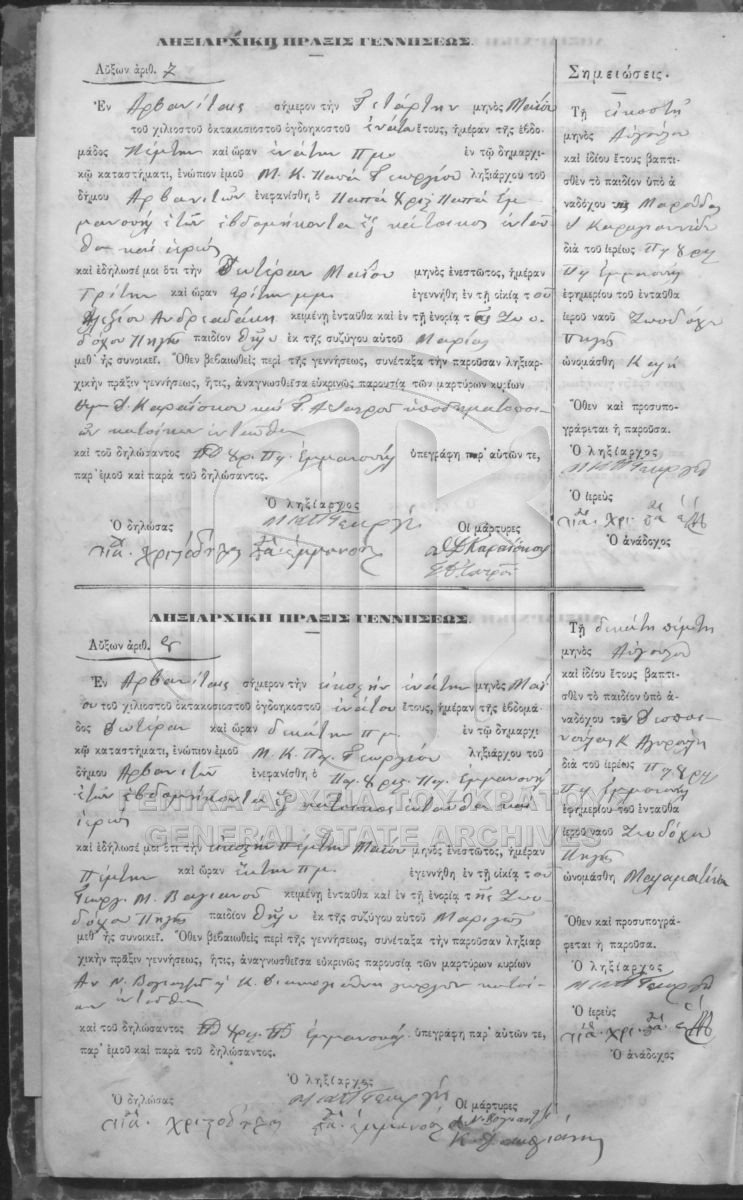 ΛΗΞΙΑΡΧΙΚΗ ΠΡΑΞΙΣ ΓΕΝΝΗΣΕΩΣ.
Αὔξων ἀριθ. 7
Ἐν Ἀρβανίταις σήμερον τὴν Τετάρτην μηνὸς Μαΐου
τοῦ χιλιοστοῦ ὀκτακοσιοστοῦ ὀγδοηκοστοῦ ἐνάτου ἔτους, ἡμέραν τῆς ἑβδο-
μάδος Πέμπτην καὶ ὥραν ἐνάτην π.μ. ἐν τῷ δημαρχι-
κῷ καταστήματι, ἐνώπιον ἐμοῦ Μ. Κ. Παπᾶ Γεωργίου ληξιάρχου τοῦ
δήμου Ἀρβανιτῶν ἐνεφανίσθη ὁ Παπᾶ Χρισ. Παπᾶ Ἐμ
μανουὴλ ἐτῶν ἑβδομήκοντα ἓξ κάτοικος ἐνταῦ
θα καὶ ἱερεὺς
καὶ ἐδήλωσέ μοι ὅτι τὴν Δευτέραν Μαΐου μηνὸς ἐνεστῶτος, ἡμέραν
Τρίτην καὶ ὥραν τρίτην μ.μ. ἐγεννήθη ἐν τῇ οἰκίᾳ τοῦ
Ἀλεξίου Ἀνδρεαδάκη κειμένῃ ἐνταῦθα καὶ ἐν τῇ ἐνορίᾳ τῆς Ζωο
δόχου Πηγῆς παιδίον θῆλυ ἐκ τῆς συζύγου αὐτοῦ Μαρίας
μεθ᾽ ἧς συνοικεῖ. Ὅθεν βεβαιωθεὶς περὶ τῆς γεννήσεως, συνέταξα τὴν παροῦσαν ληξιαρ-
χικὴν πρᾶξιν γεννήσεως, ἥτις, ἀναγνωσθεῖσα εὐκρινῶς παρουσίᾳ τῶν μαρτύρων κυρίων
Δ. Καραΐσκου καὶ Γ. Δ. Ἰατροῦ ὑποδηματοποι
ῶν κατοίκων ἐνταῦθα
καὶ τοῦ δηλώσαντος Χρ. Πα. Ἐμμανουὴλ ὑπεγράφη παρ᾽ αὐτῶν τε,
παρ᾽ ἐμοῦ καὶ παρὰ τοῦ δηλώσαντος.
Ὁ ληξίαρχος
Ὁ δηλώσας Οἱ μάρτυρες
Δ Καραΐσκος
Σημειώσεις.
Τῇ εἰκοστῇ
μηνὸς Αὐγούστου
καὶ ἰδίου ἔτους βαπτι-
σθὲν τὸ παιδίον ὑπὸ ἀ-
ναδόχου τῆς Μαρούδας
Δ Καραγιαννίδου
διὰ τοῦ ἱερέως Πα Χρισ
Πα Ἐμμανουὴλ
ἐφημερίου τοῦ ἐνταῦθα
ἱεροῦ ναοῦ Ζωοδόχου
Πηγῆς
ὠνομάσθη Καλὴ
Ὅθεν καὶ προσυπο-
γράφεται ἡ παροῦσα.
Ὁ ληξίαρχος
Ὁ ἱερεὺς
Ὁ ἀνάδοχος
ΛΗΞΙΑΡΧΙΚΗ ΠΡΑΞΙΣ ΓΕΝΝΗΣΕΩΣ.
Αὔξων ἀριθ. 8
Ἐν Ἀρβανίταις σήμερον τὴν εἰκοστὴν ἐνάτην μηνὸς Μαΐ
ου τοῦ χιλιοστοῦ ὀκτακοσιοστοῦ ὀγδοηκοστοῦ ἐνάτου ἔτους, ἡμέραν τῆς ἑβδομά-
δος Δευτέραν καὶ ὥραν δεκάτην π.μ. ἐν τῷ δημαρχι-
κῷ καταστήματι, ἐνώπιον ἐμοῦ Μ. Κ. Πα. Γεωργίου ληξιάρχου τοῦ
δήμου Ἀρβανιτῶν ἐνεφανίσθη ὁ Πα. Χρισ. Πα. Ἐμμανουὴλ
ἐτῶν ἑβδομήκοντα ἓξ κάτοικος ἐνταῦθα καὶ
ἱερεὺς
καὶ ἐδήλωσέ μοι ὅτι τὴν εἰκοστὴν πέμπτην Μαΐου μηνὸς ἐνεστῶτος, ἡμέραν
Πέμπτην καὶ ὥραν ἕκτην π.μ. ἐγεννήθη ἐν τῇ οἰκίᾳ τοῦ
Γεωργ. Μ. Βαγιανοῦ κειμένῃ ἐνταῦθα καὶ ἐν τῇ ἐνορίᾳ τῆς Ζωο
δόχου Πηγῆς παιδίον θῆλυ ἐκ τῆς συζύγου αὐτοῦ Μαριγῶς
μεθ᾽ ἧς συνοικεῖ. Ὅθεν βεβαιωθεὶς περὶ τῆς γεννήσεως, συνέταξα τὴν παροῦσαν ληξιαρ
χικὴν πρᾶξιν γεννήσεως, ἥτις, ἀναγνωσθεῖσα εὐκρινῶς παρουσίᾳ τῶν μαρτύρων κυρίων
γεωργῶν κατοί
κων ἐνταῦθα
καὶ τοῦ δηλώσαντος Χρισ. Ἐμμανουὴλ ὑπεγράφη παρ᾽ αὐτῶν τε,
παρ᾽ ἐμοῦ καὶ παρὰ τοῦ δηλώσαντος.
Ὁ ληξίαρχος
Ὁ δηλώσας Οἱ μάρτυρες
Τῇ δεκάτῃ πέμπτῃ
μηνὸς Αὐγούστου
καὶ ἰδίου ἔτους βαπτι-
σθὲν τὸ παιδίον ὑπὸ ἀ-
ναδόχου τῆς Δεσποι-
διὰ τοῦ ἱερέως Πα Χρισ
Πα Ἐμμανουὴλ
ἐφημερίου τοῦ ἐνταῦθα
ἱεροῦ ναοῦ Ζωοδόχου
Πηγῆς
ὠνομάσθη Μαλαματένια
Ὅθεν καὶ προσυπογρά-
φεται ἡ παροῦσα.
Ὁ ληξίαρχος
Ὁ ἱερεὺς
Ὁ ἀνάδοχος
ΓΕΝΙΚΑ ΑΡΧΕΙΑ ΤΟΥ ΚΡΑΤΟΥΣ
GENERAL STATE ARCHIVES